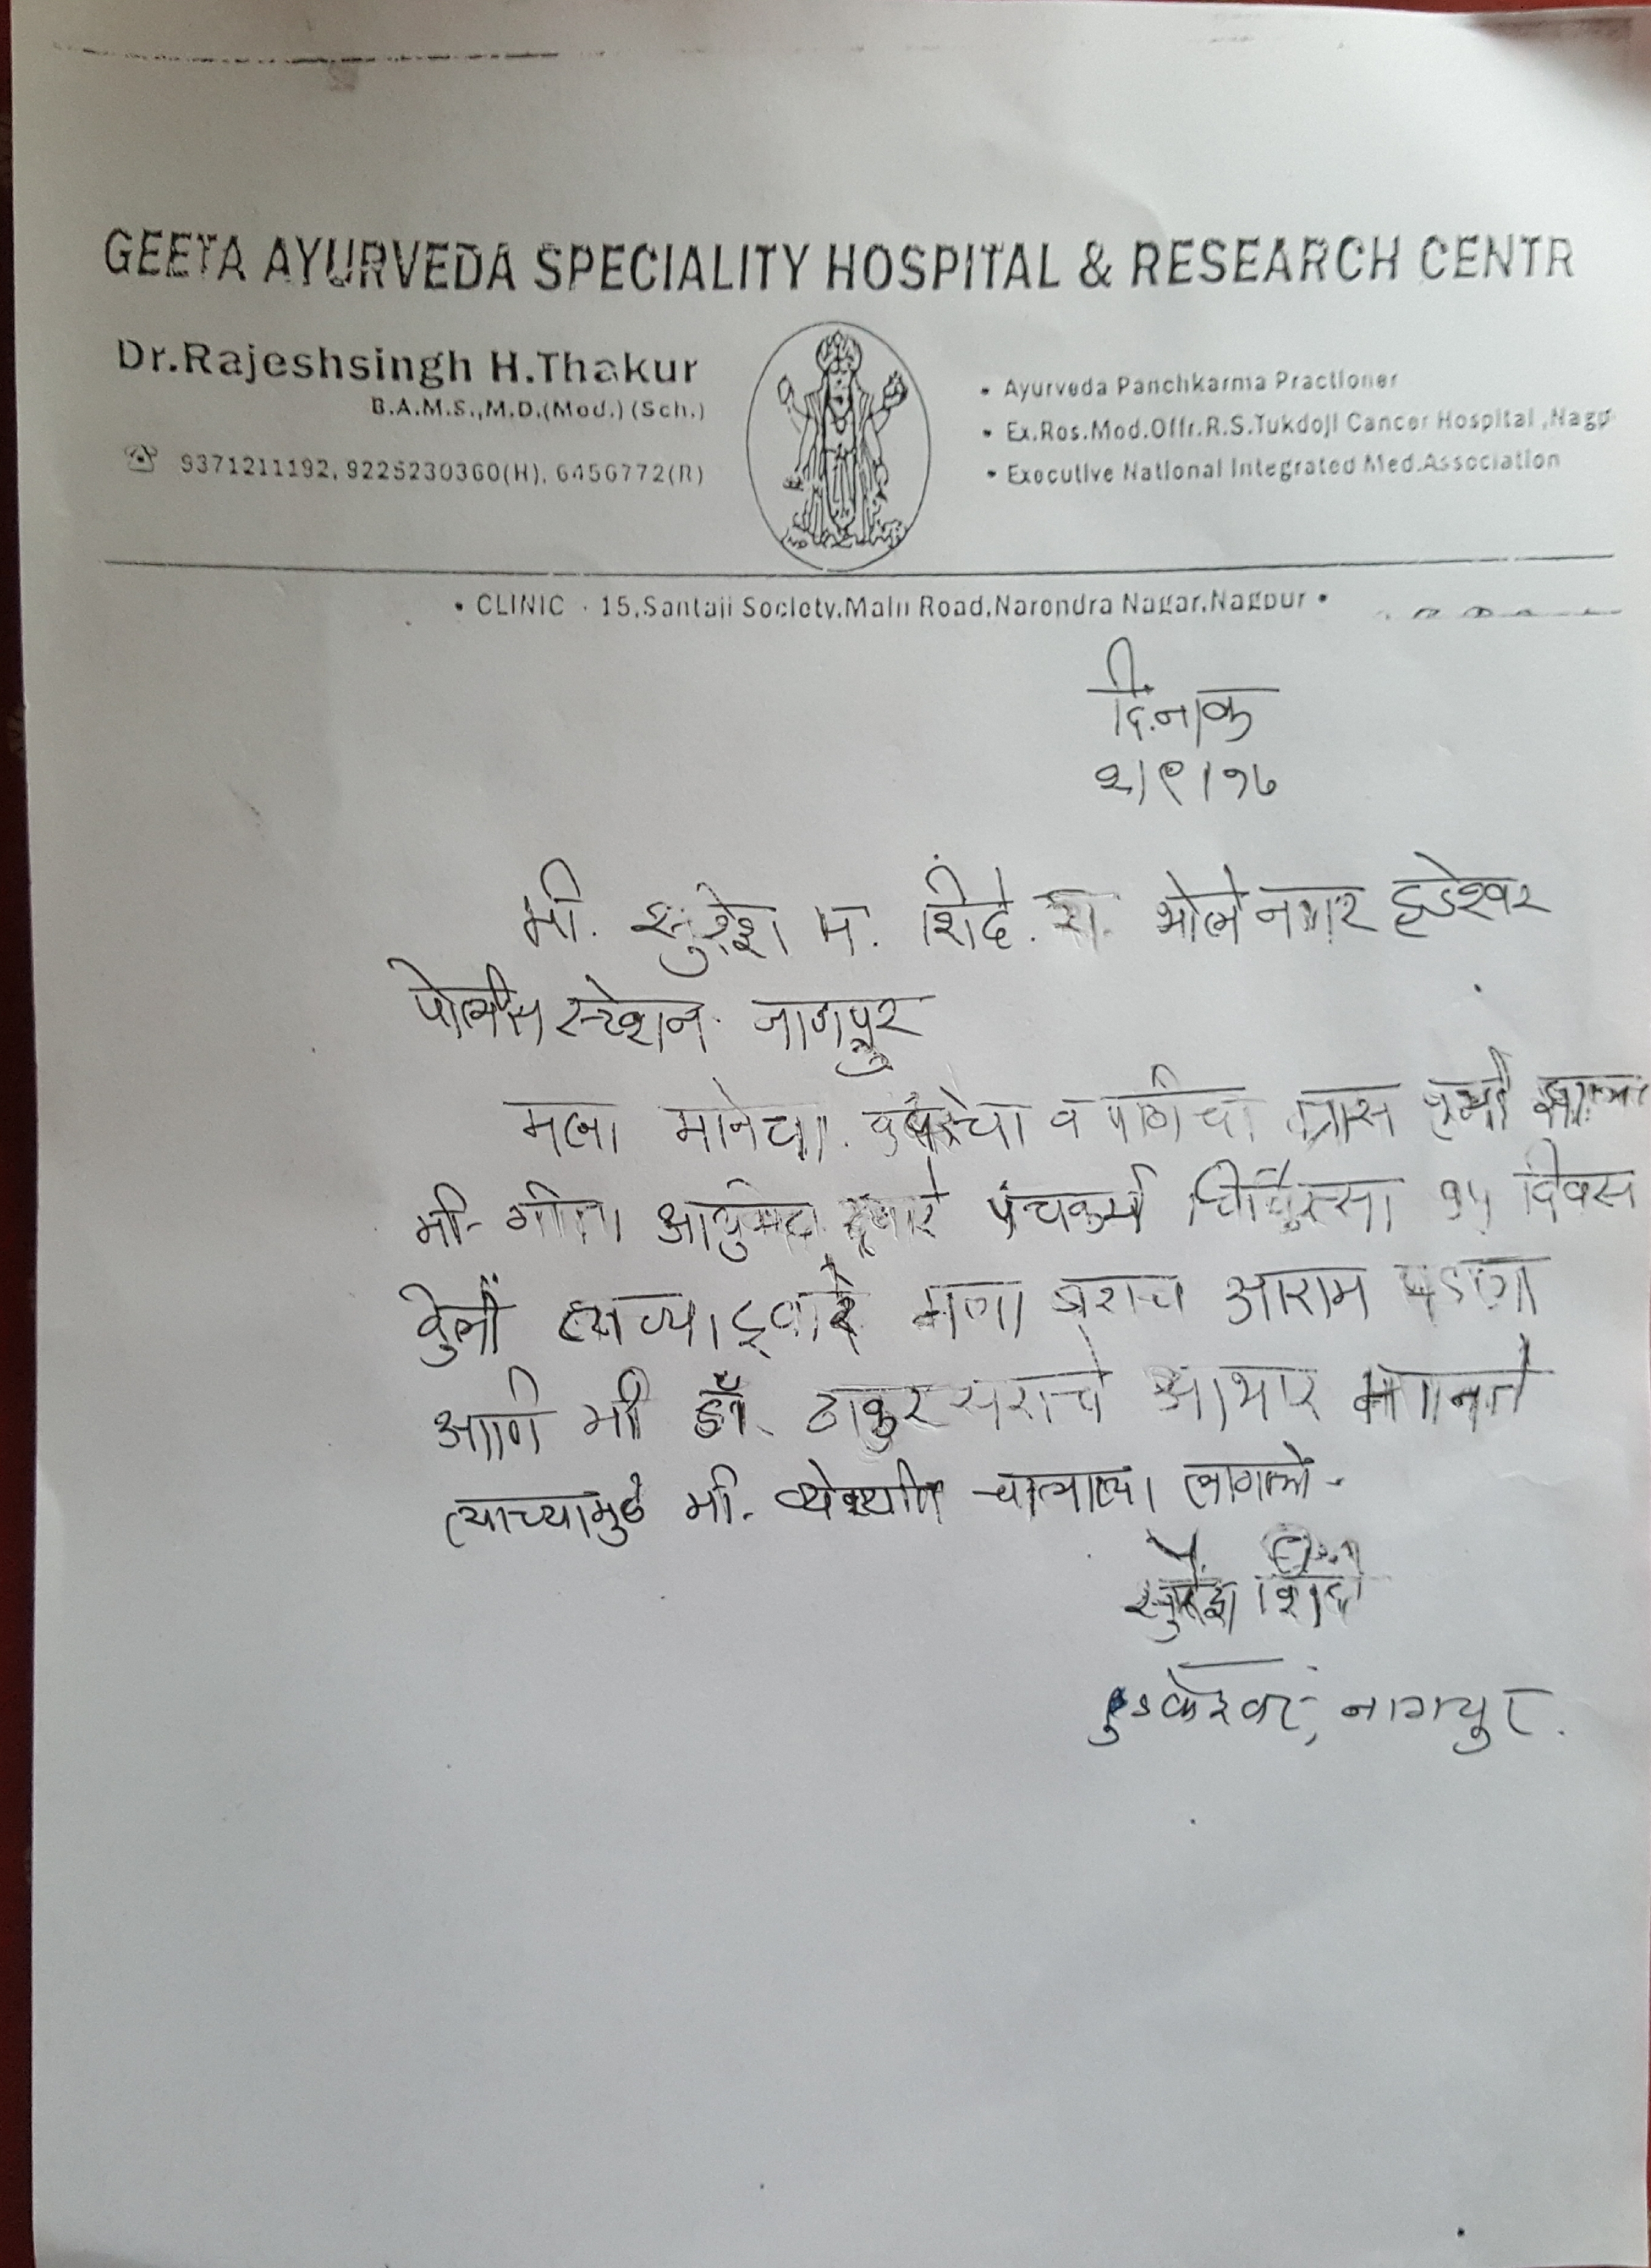 GEETA AYURVEDA SPECIALITY HOSPITAL & RESEARCH CENTR
Dr.Rajeshsingh H.Thakur
B.A.M.S.,M.D.(Med.) (Sch.)
9371211192, 9225230360(H), 6456772(R)
• Ayurveda Panchkarma Practioner
• Ex.Res.Med.Offr.R.S.Tukdoji Cancer Hospital ,Nagp
• Executive National Integrated Med.Association
• CLINIC · 15,Santaji Society,Main Road,Narendra Nagar,Nagpur •
दिनांक
२/९/१७
मी. सुरेश म. शिंदे. रा. भोलेनगर हुडेश्वर
पोलीस स्टेशन. नागपूर
मला मानेचा. कंबरेचा व पाठीचा त्रास
मी- गीता आयुर्वेदा द्वारे पंचकर्म चिकित्सा १५ दिवस
केली त्याच्याद्वारे मला बराच आराम पडला
आणि मी डॉ. ठाकुर सराचे आभार मानतो
त्याच्यामुळे मी. चालायला लागलो-
सुरेश शिंदे
हुडकेश्वर, नागपुर.